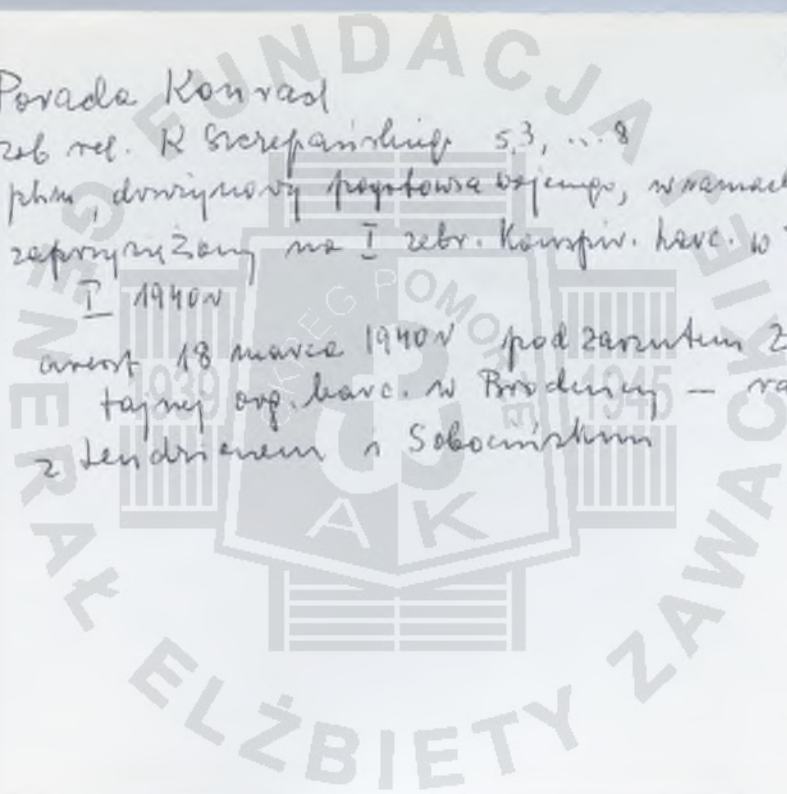 Porada Konrad
zob rel. K Szczepańskiego s 3, ... 8
phm, drużynowy pogotowia wojennego, w ramach
zaprzysiężony na I zebr. Konspir. harc. w
I 1940 r
areszt 18 marca 1940 r pod zarzutem
tajnej org. harc. w Brodnicy –
z Lendzionem i Sobocińskim
FUNDACJA
GENERAŁ ELŻBIETY ZAWACKIEJ
OKRĘG POMORZE
1939 1945
AK